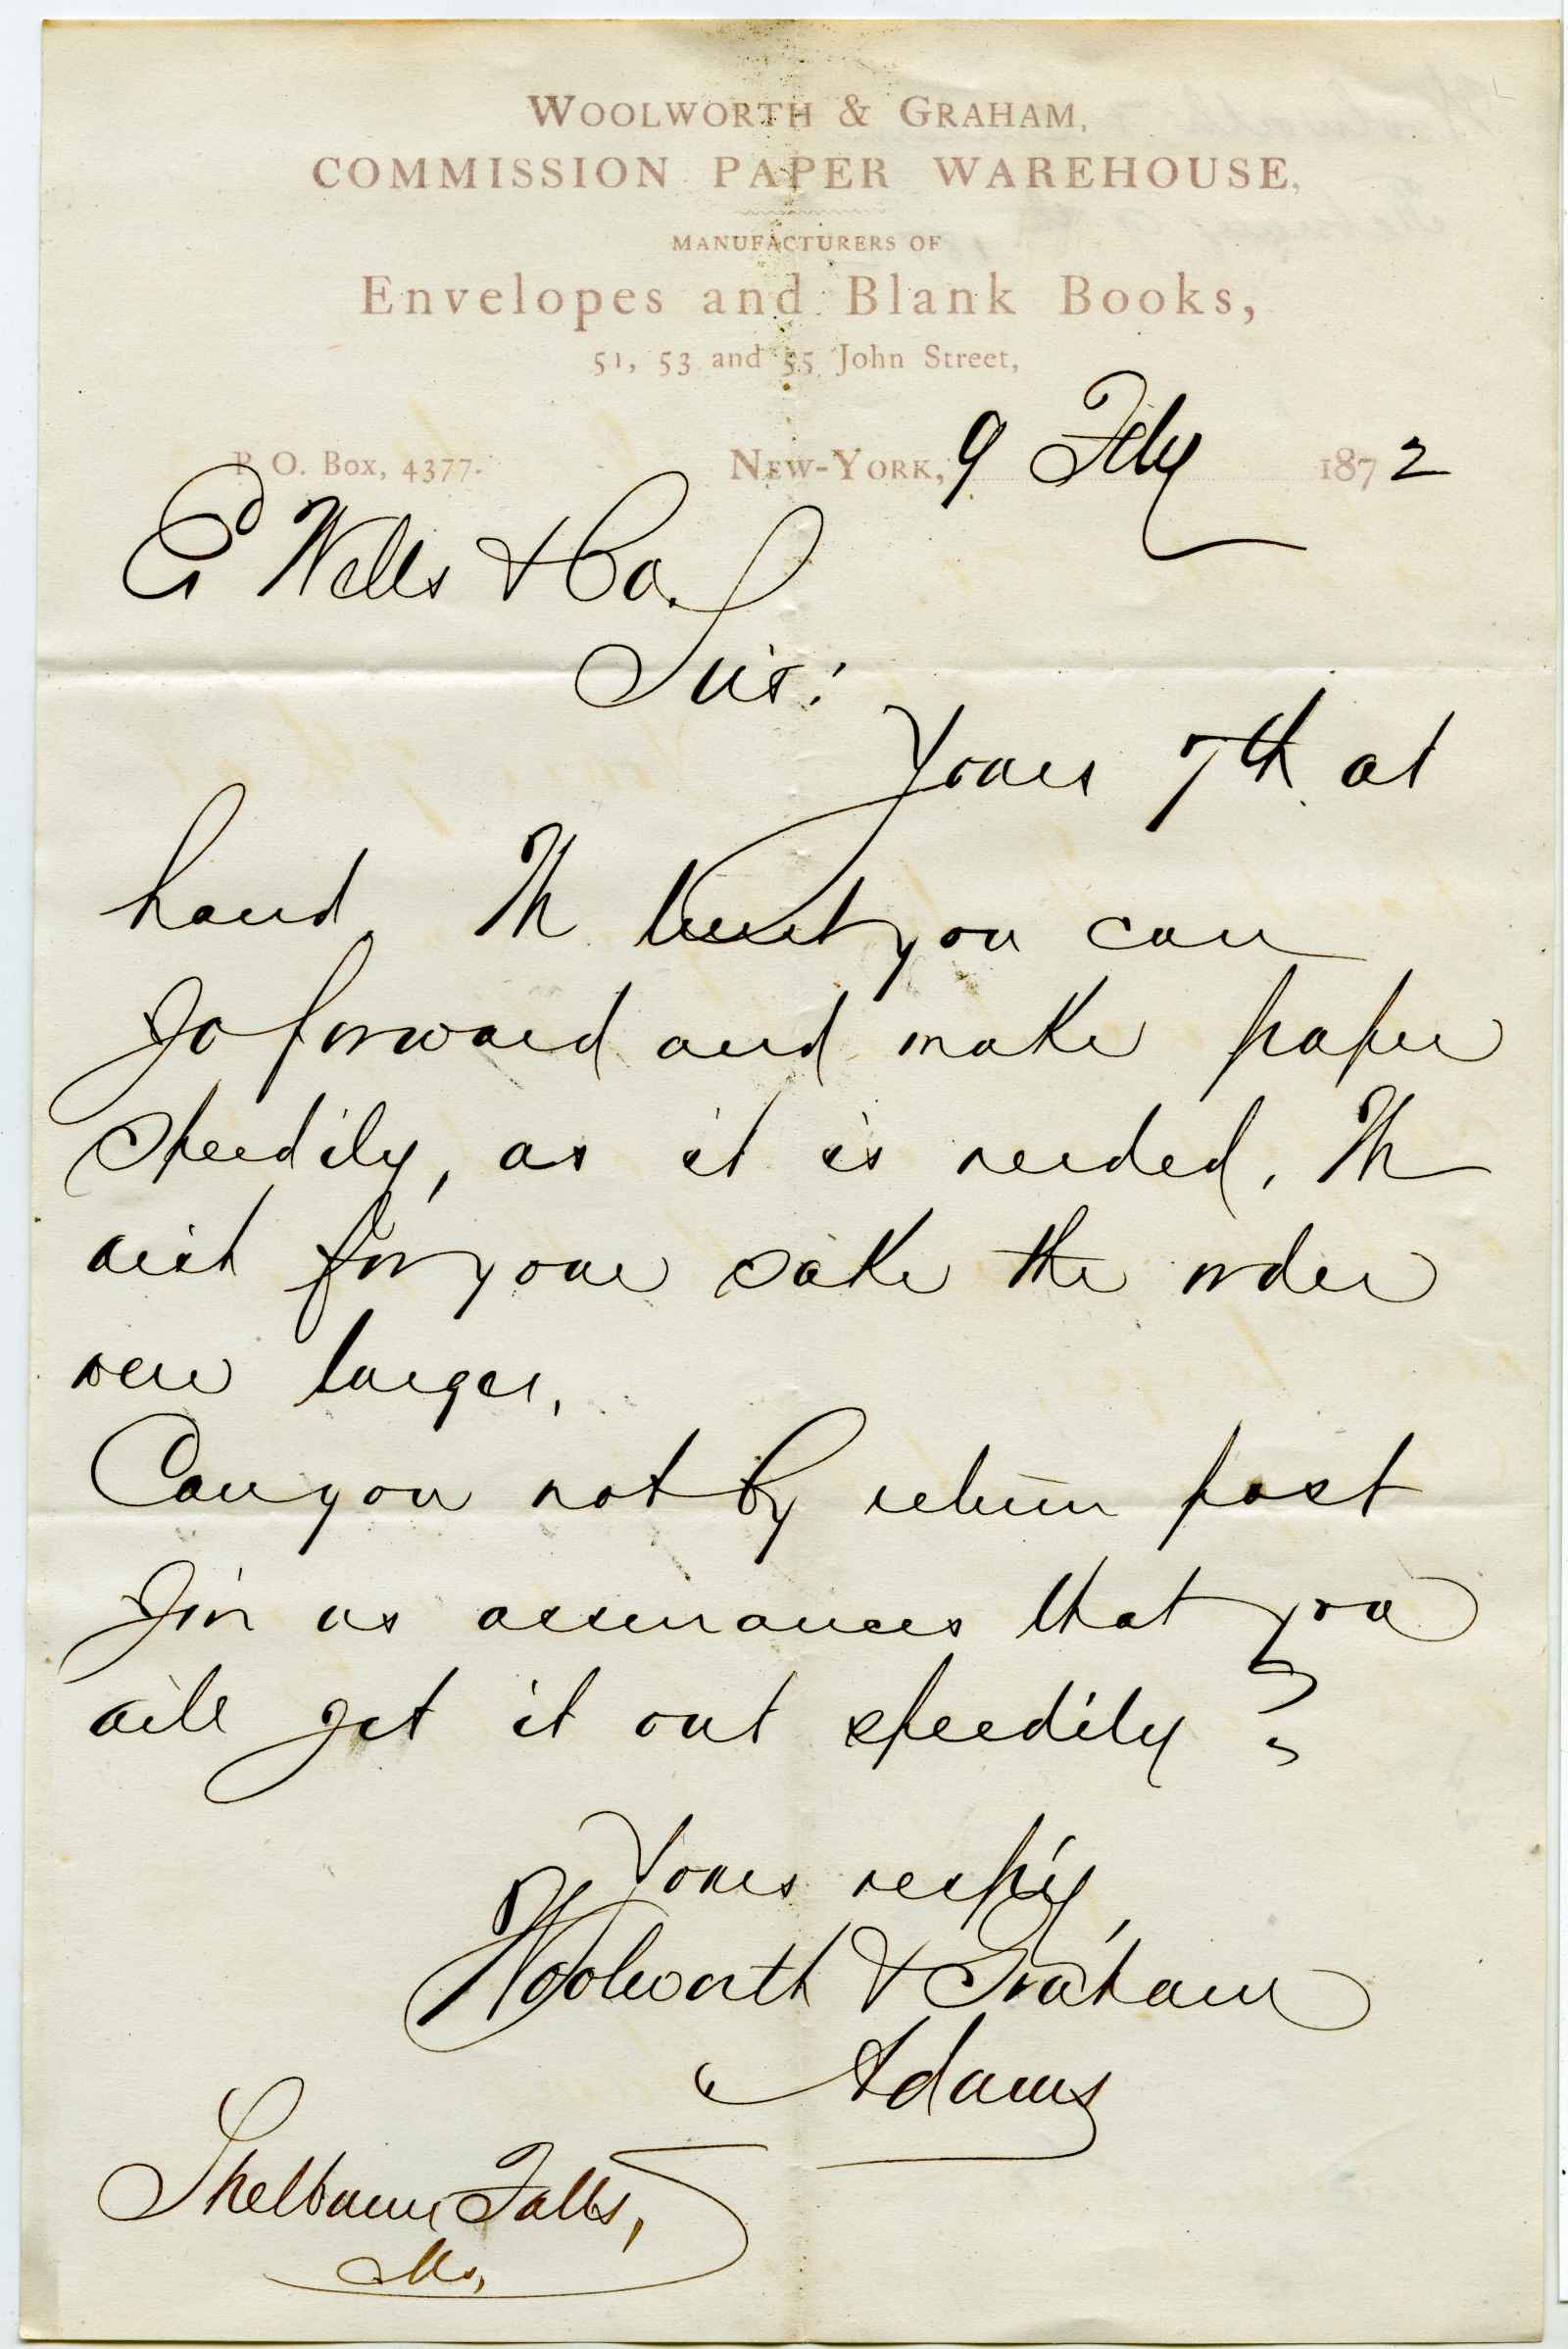 WOOLWORTH & GRAHAM,
COMMISSION PAPER WAREHOUSE,
MANUFACTURERS OF
Envelopes and Blank Books,
51, 53 and 55 John Street,
P. O. Box, 4377.
NEW-YORK, 9 Feby 1872
Ed Wells & Co.
Sirs:
Yours 7th at
hand. We trust you can
go forward and make paper
speedily, as it is needed. We
wish for your sake the order
were larger.
Can you not by return post
give us assurances that you
will get it out speedily?
Yours resp'y,
Woolworth & Graham
Adams
Shelburne Falls,
Ms.